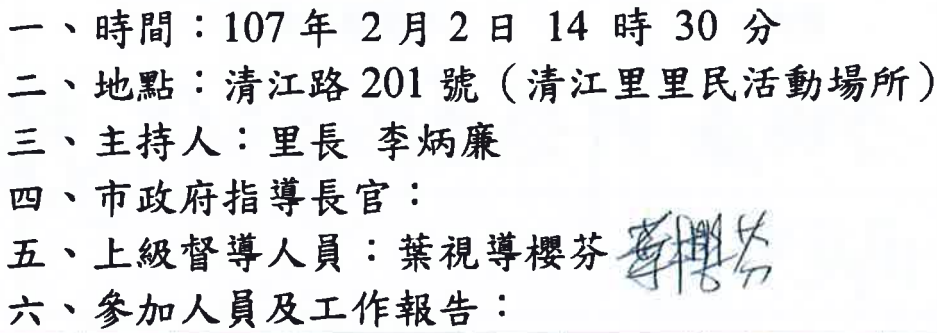 一、時間：107 年 2 月 2 日 14 時 30 分
二、地點：清江路 201 號（清江里里民活動場所）
三、主持人：里長 李炳廉
四、市政府指導長官：
五、上級督導人員：葉視導櫻芬 葉櫻芬
六、參加人員及工作報告：